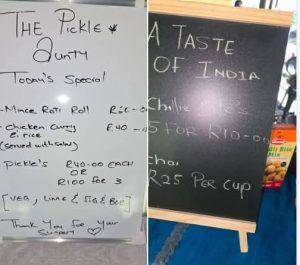 THE Pickle
Aunty
Today's Special
- Mince Roti Roll
- Chicken Curry R40-
& rice
(served with salad)
Pickle's R40-00 EACH
OR
R100 FOR 3
Thank You For Your
Support
A TASTE
OF INDIA
Chillie
5 FOR R10-
chai
R25 PER CUP